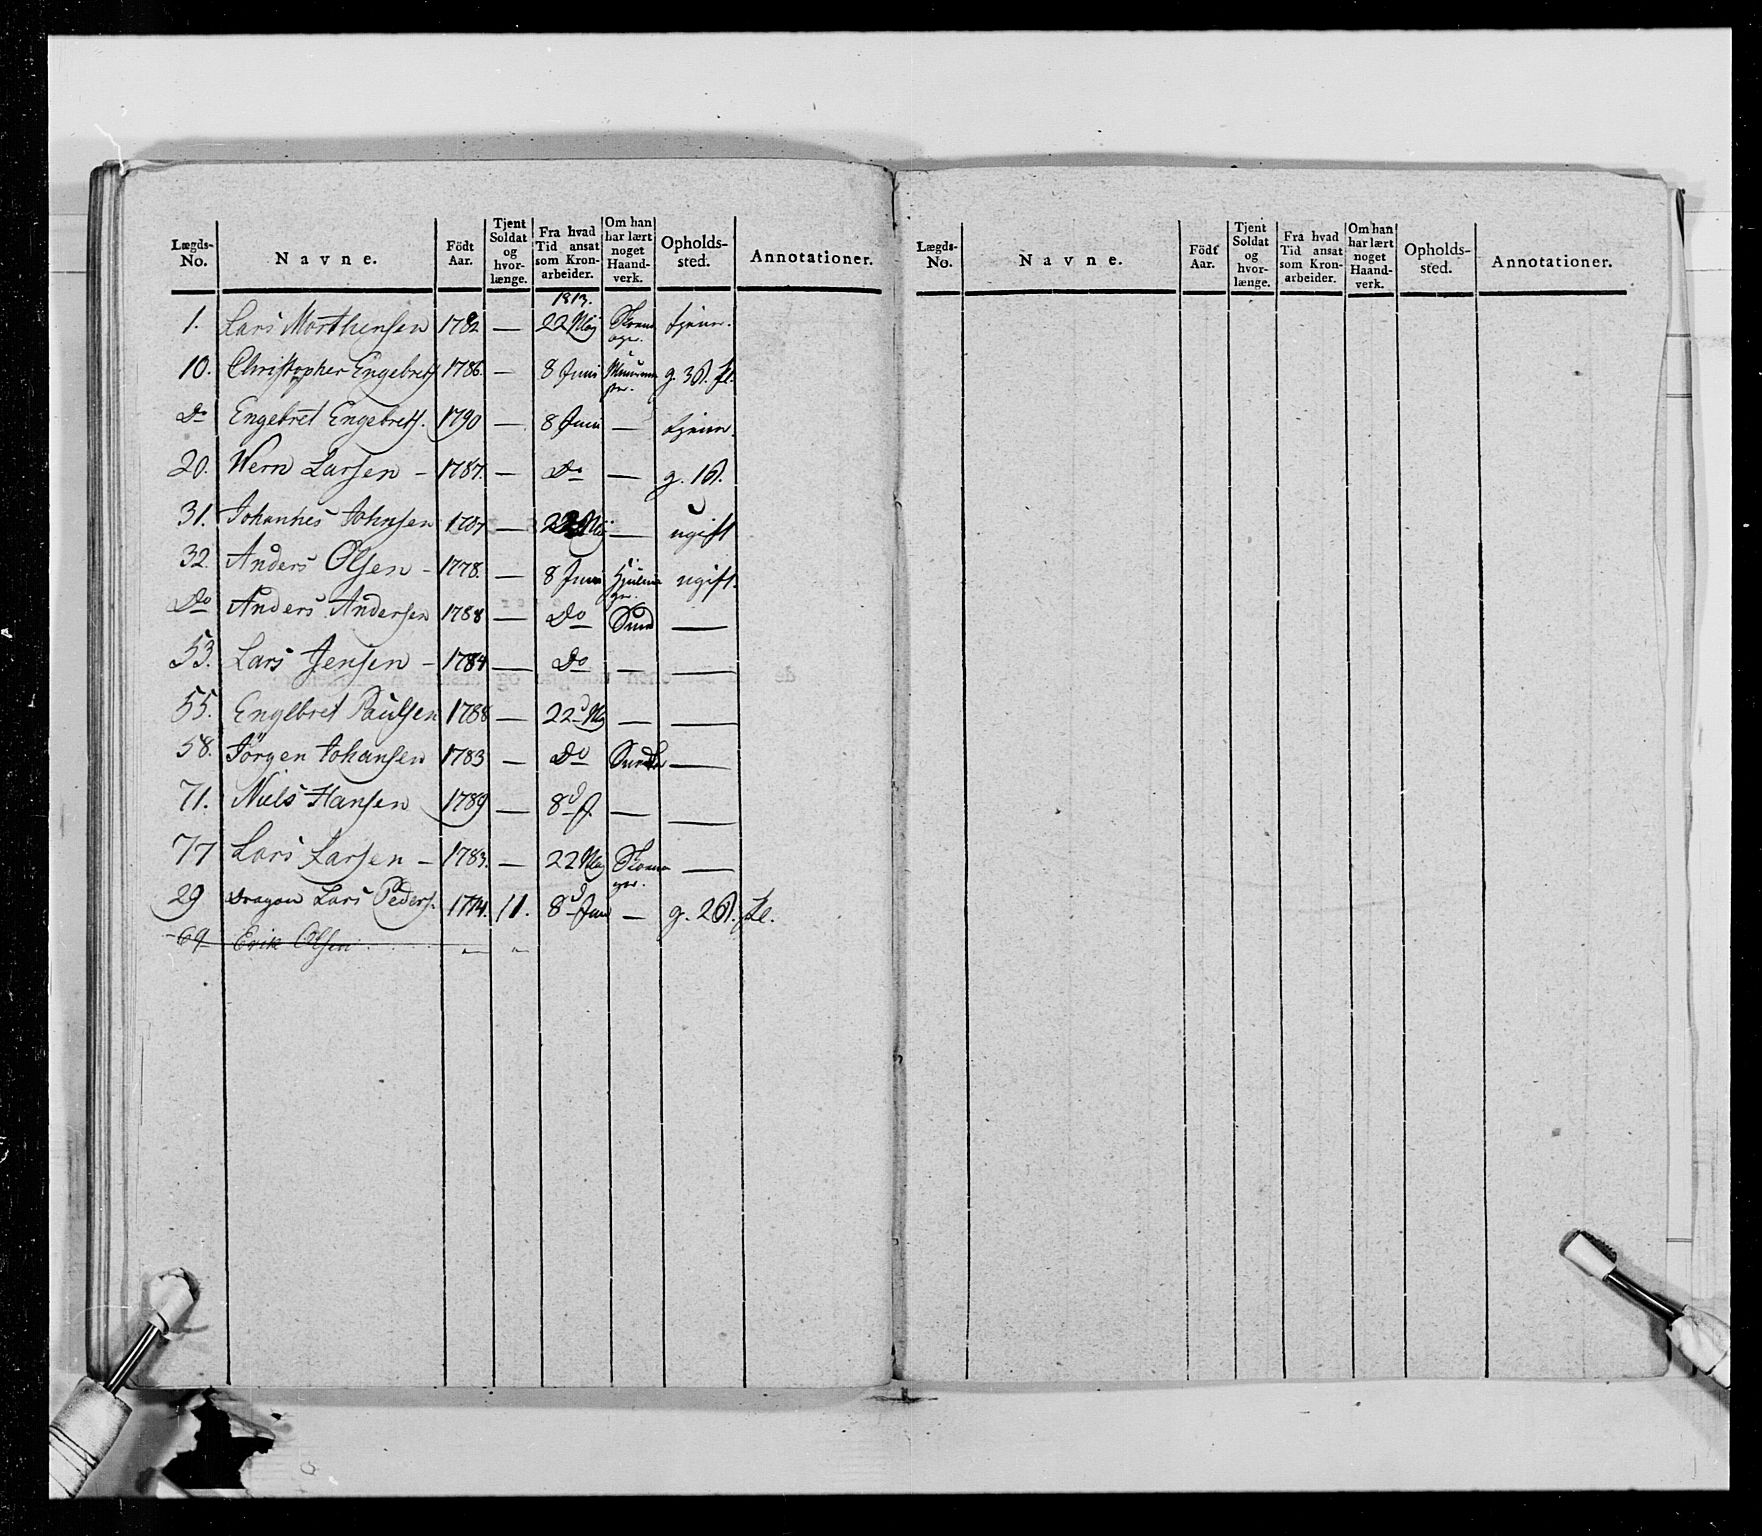 Lægds-No. Navne. Födt Aar. Tjent Soldat og hvor-længe. Fra hvad Tid ansat som Kron-arbeider. Om han har lært noget Haand-verk. Opholds-sted. Annotationer.
1813.
1. Lars Morthensen 1782 — 22 Maj tjener.
10. Christopher Engebrets. 1786. — 8 Juni g. 3 B.
Do Engebret Engebrets. 1790 — 8 Juni — tjener.
20. Wern Larsen – 1787. — Do — g. 1 B.
31. Johannes Johnsen 1787 — 22 Maj — ugift
32. Anders Olsen – 1778. — 8 Juni ugift.
Do Anders Andersen 1788 — Do —
53. Lars Jensen – 1784 — Do — —
55. Engebret Paulsen 1788 — 22d Maj — —
58. Jörgen Johansen 1783 — Do —
71. Niels Hansen 1789 — 8d J. — —
77 Lars Larsen – 1783. — 22 Maj —
29 Dragon Lars Peders. 1774. 11. 8d Juni — g. 2 B.
69 Erik Olsen
Lægds-No. Navne. Födt Aar. Tjent Soldat og hvor-længe. Fra hvad Tid ansat som Kron-arbeider. Om han har lært noget Haand-verk. Opholds-sted. Annotationer.